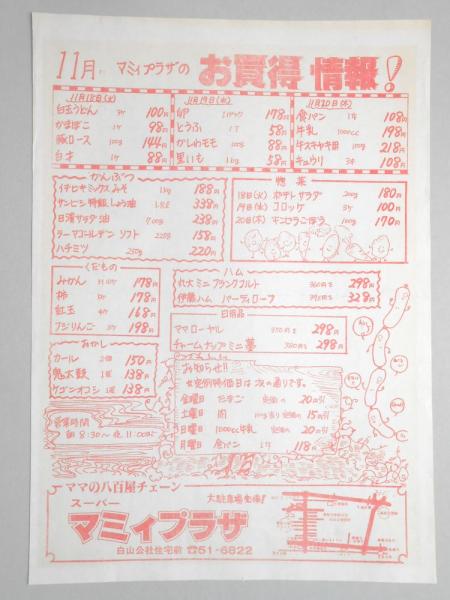 11月 マミィプラザの お買得 情報!
11月18日(火)
白玉うどん 3ケ 100円
かまぼこ 1ケ 98円
豚ロース 100g 144円
白才 1ケ 88円
11月19日(水)
卵 1パック 178円
とうふ 1丁 58円
かしわモモ 100g 88円
里いも 1kg 58円
11月20日(木)
食パン 1ケ 108円
牛乳 1000cc 198円
牛スキヤキ用 100g 218円
キュウリ 3本 108円
かんぶつ
イチビキミックスみそ 1kg 188円
サンビシ特級しょう油 1.8ℓ 338円
日清サラダ油 700g 238円
ラーマゴールデンソフト 225g 158円
ハチミツ 250g 220円
惣菜
18日(火) ポテトサラダ 200g 180円
19日(水) コロッケ 3ケ 100円
20日(木) キンピラごぼう 100g 170円
くだもの
みかん 178円
柿 178円
紅玉 4ケ 168円
フジりんご 3ケ 198円
ハム
丸大ミニフランクフルト 360g 298円
伊藤ハム パーティロープ 328円
日用品
ママローヤル 298円
チャームナップミニ 298円
おかし
カール 2個 150円
鬼太鼓 1袋 138円
ケゴンオコシ 1袋 138円
お知らせ!!
曜例特価日は次の通りです。
金曜日 たまご 定価の20円引
土曜日 肉 100g当り定価の15円引
日曜日 1000cc牛乳 定価の20円引
月曜日 食パン 1ケ 118円
営業時間
朝8:30〜夜11:00迄
ママの八百屋チェーン
スーパー
マミィプラザ
大駐車場完備!
白山公社住宅前 ☎51-6822